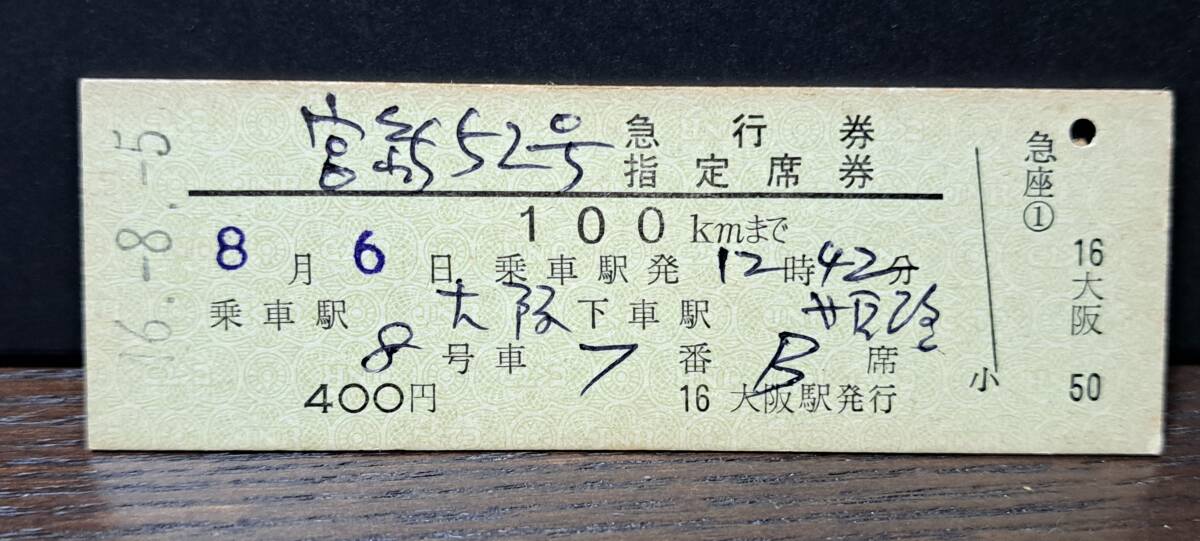 52号 急行券
指定席券
100kmまで
8月6日 乗車駅発 12時42分
乗車駅 大阪 下車駅
8号車 7番 B席
400円 16 大阪駅発行
6.-8.-5
急座①
小
16大阪
50